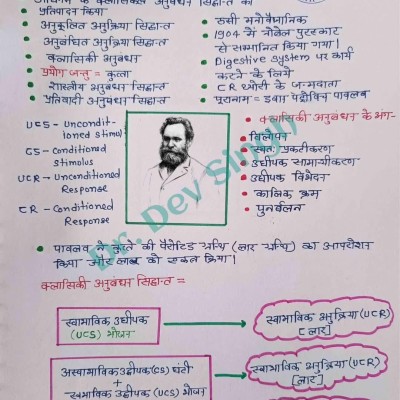 अधिगम के क्लासिकल अनुबंधन सिद्धान्त का
प्रतिपादन किया
अनुकूलित अनुक्रिया सिद्धान्त
अनुबंधित अनुक्रिया सिद्धान्त
क्लासिकी अनुबंधन
प्रयोग जन्तु = कुत्ता
शास्त्रीय अनुबंधन सिद्धान्त
प्रतिवादी अनुबंधन सिद्धान्त
रूसी मनोवैज्ञानिक
1904 में नोबेल पुरस्कार
से सम्मानित किया गया।
Digestive system पर कार्य
करने के लिये
CR थ्योरी के जन्मदाता
पूरानाम = इवान पेट्रोविच पावलव
UCS - Uncondit-
ioned stimul
CS - Conditioned
Stimulus
UCR - Unconditioned
Response
CR - Conditioned
Response
क्लासिकी अनुबंधन के अंग-
विलोपन
स्वतः प्रकटीकरण
उद्दीपक सामान्यीकरण
उद्दीपक विभेदन
कालिक क्रम
पुनर्बलन
Dr. Dev Singh
पावलव ने कुत्ते की पैरोटिड ग्रन्थि (लार ग्रन्थि) का आपरेशन
किया और लार को एकत्र किया।
क्लासिकी अनुबंधन सिद्धान्त =
स्वाभाविक उद्दीपक
(UCS) भोजन
स्वाभाविक अनुक्रिया (UCR)
[लार]
अस्वाभाविक उद्दीपक (CS) घंटी
+
स्वाभाविक उद्दीपक (UCS) भोजन
स्वाभाविक अनुक्रिया (UCR)
[लार]